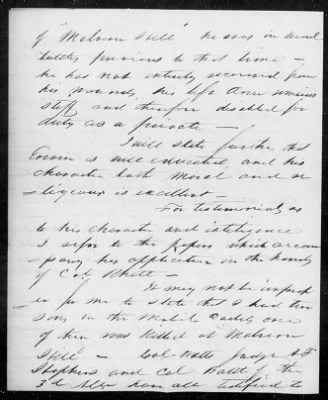 of "Malvern Hill" he was in several
battles previous to that time —
he has not entirely recovered from
his wounds, his left Arm remains
stiff and therefore disabled for
duty as a private —
I will state further that
is well educated, and his
character both Moral and re
-ligious is excellent —
For testimonials as
to his character and intelligence
I refer to the papers which accom
-pany his application in the hands
of Col
It may not be improp
er for me to state that I had two
sons in the Mobile Cadets, one
of them was killed at Malvern
Hill — Col Watts Judge
Hopkins and Col Battle of the
3d Ala have all testified to